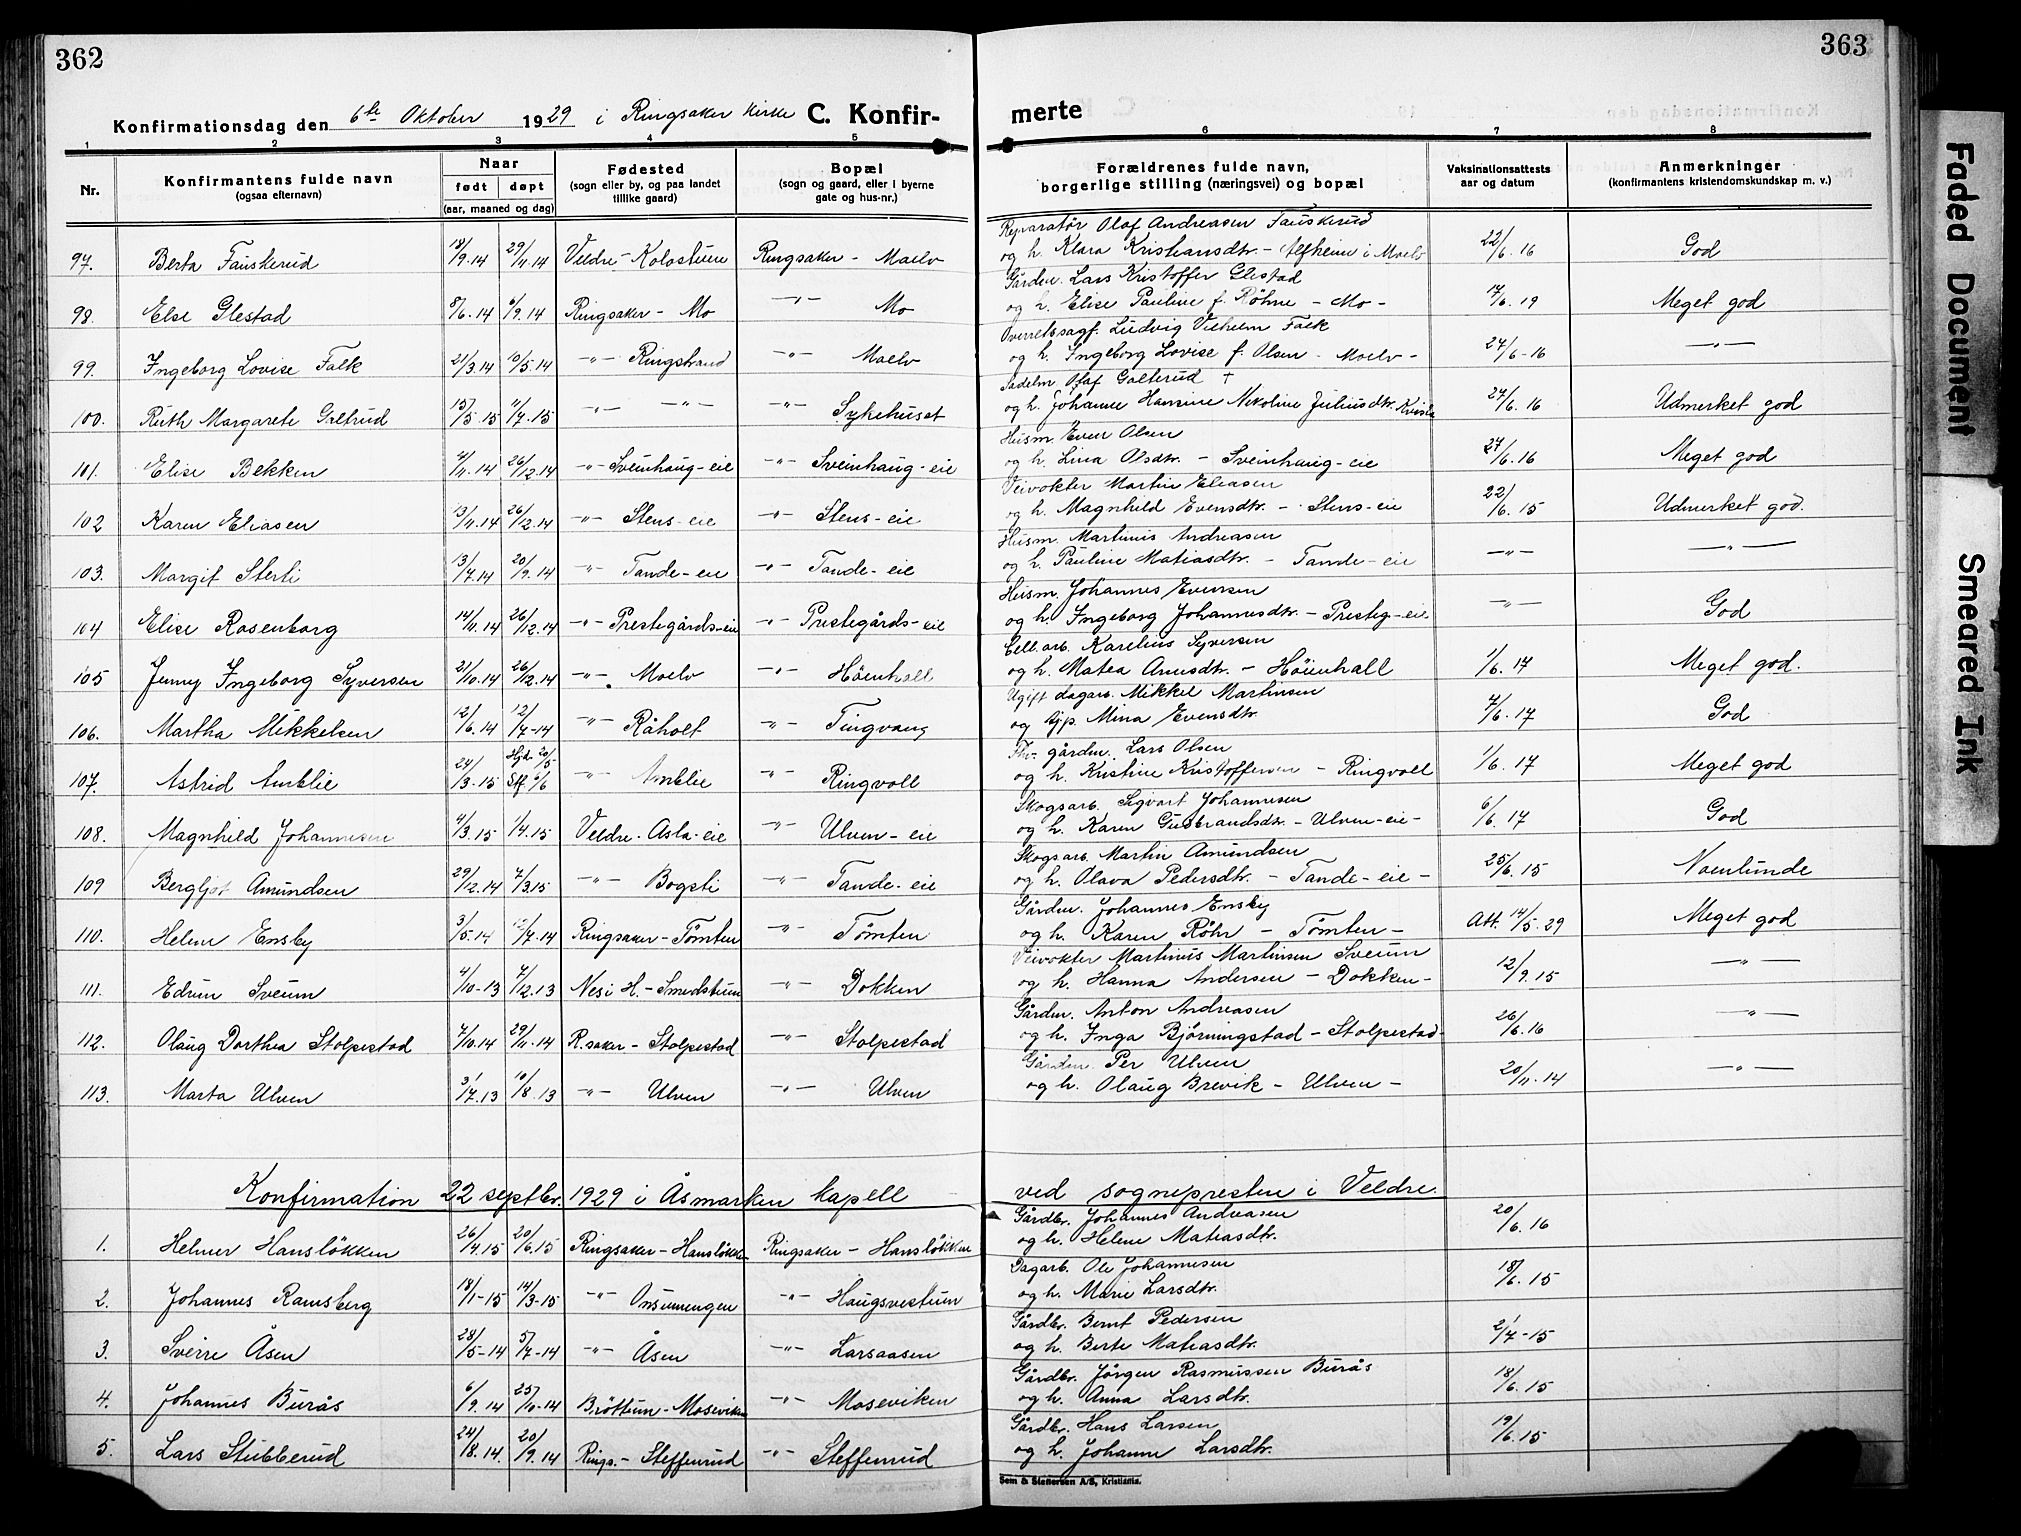 362
Konfirmationsdag den 6te Oktober 1929 i Ringsaker Kirke C. Konfir-
1 2 3 4 5
Nr. Konfirmantens fulde navn (ogsaa efternavn) Naar født døpt (aar, maaned og dag) Fødested (sogn eller by, og paa landet tillike gaard) Bopæl (sogn og gaard, eller i byerne gate og hus-nr.)
97. Berta Fauskerud 18/9.14 29/11.14 Veldre - Kolostuen Ringsaker - Moelv
98. Else Glestad 8/6.14 6/9.14 Ringsaker - Mo -"- Mo
99. Ingeborg Lovise Falk 21/3.14 10/5.14 -"- Ringstrand -"- Moelv
100. Ruth Margarete Galtrud 15/5.15 11/7.15 -"- -"- Sykehuset
101. Elise Bekken 4/11.14 26/12.14 -"- Sveinhaug-eie -"- Sveinhaug-eie
102 Karen Eliasen 13/11.14 26/12.14 -"- Stens-eie -"- Stens-eie
103. Margit Sterti 13/7.14 20/9.14 -"- Tande-eie -"- Tande-eie
104 Elise Rosenborg 14/11.14 26/12.14 -"- Prestegårds-eie -"- Prestegårds-eie
105 Jenny Ingeborg Syversen 21/10.14 26/12.14 -"- Moelv -"- Höienhall
106. Martha Mikkelsen 12/6.14 12/7-14 -"- Råholt -"- Tingvang
107. Astrid Amblie 24/3.15 Hjd. 20/5 St. 6/6 -"- Amblie -"- Ringvoll
108. Magnhild Johannesen 4/3.15 1/4.15 Veldre - Asla-eie -"- Ulven-eie
109 Bergljot Amundsen 29/12.14 7/3.15 -"- Bogsti -"- Tande-eie
110. Helene Ensby 3/5.14 12/7.14 Ringsaker - Tömten -"- Tömten
111. Edrun Sveum 4/10-13 7/12.13 Nes i H. - Smedstuen -"- Dokken
112. Olaug Dorthea Stolpestad 7/10.14 29/11.14 R.saker - Stolpestad -"- Stolpestad
113. Marta Ulven 31/7.13 10/8.13 -"- Ulven -"- Ulven
Konfirmation 22 septbr. 1929 i Åsmarken kapell
1. Helmer Hanslökken 26/4.15 20/6.15 Ringsaker - Hanslökken Ringsaker - Hanslökken
2. Johannes Ramsberg 18/1-15 14/3-15 -"- Onsumengen -"- Haugsvestum
3. Sverre Åsen 28/5-14 5/7-14 -"- Åsen -"- Larsaasen
4. Johannes Burås 6/9.14 25/10-14 Bröttum - Moseviken -"- Moseviken
5. Lars Stubberud 24/8.14. 20/9.14 Rings. - Steffenrud -"- Steffenrud
363
merte
6 7 8
Forældrenes fulde navn, borgerlige stilling (næringsvei) og bopæl Vaksinationsattests aar og datum Anmerkninger (konfirmantens kristendomskundskap m. v.)
Reparatør Olaf Andreasen Fauskerud
og h. Klara Kristiansdtr. - Alfheim i Moelv 22/6.16 God
Gårdm. Lars Kristoffer Glestad
og h. Elise Pauline f. Röhne - Mo - 17/6.19 Meget god
Overretssagf. Ludvig Vilhelm Falk
og h. Ingeborg Lovise f. Olsen - Moelv - 24/6-16 -"-
Sadelm. Olaf Galterud †
og h. Johanne Hansine Nikoline Juliusdtr. 27/6.16 Udmerket god
Husm. Even Olsen
og h. Lina Olsdtr. - Sveinhaug-eie 27/6.16 Meget god
Veivokter Martin Eliasen
og h. Magnhild Evensdtr. - Stens-eie 22/6.15 Udmerket god.
Husm. Martinus Andreasen
og h. Pauline Matiasdtr. - Tande-eie -"- -"-
Husm. Johannes Evensen
og h. Ingeborg Johannesdtr. - Presteg-eie -"- God
Cell.arb. Karelius Syversen
og h. Matea Arnesdtr. - Höienhall 1/6.17 Meget god.
Ugift dagarb. Mikkel Martinsen
og Mina Evensdtr. 7/6.17 God
Fhv. gårdm. Lars Olsen
og h. Kristine Kristoffersen - Ringvoll 1/6.17 Meget god
Skogsarb. Sigvart Johannesen
og h. Karen Gudbrandsdtr. - Ulven-eie - 6/6.17 God
Skogsarb. Martin Amundsen
og h. Olava Pedersdtr. - Tande-eie - 25/6.15 Noenlunde
Gårdm. Johannes Ensby
og h. Karen Röhr - Tömten - Att. 14/5.29 Meget god
Veivokter Martinus Martinsen Sveum
og h. Hanna Andersen - Dokken - 12/9.15 -"-
Gårdm. Anton Andreasen
og h. Inga Björningstad - Stolpestad - 26/6.16 -"-
Gårdm. Per Ulven
og h. Olaug Brevik - Ulven - 20/11.14 -"-
ved sognepresten i Veldre.
Gårdbr. Johannes Andreasen
og h. Helene Matiasdtr. 20/6.16
Dagarb. Ole Johannesen
og h. Marie Larsdtr. 18/6.15
Gårdbr. Bernt Pedersen
og h. Berte Matiasdtr. 21/7-15
Gårdbr. Jörgen Rasmussen Burås
og h. Anna Larsdtr. 18/6.15
Gårdbr. Hans Larsen
og h. Johanne Larsdtr. 19/6.15
Sem & Stenersen A/S, Kristiania.
Faded Document
Smeared Ink